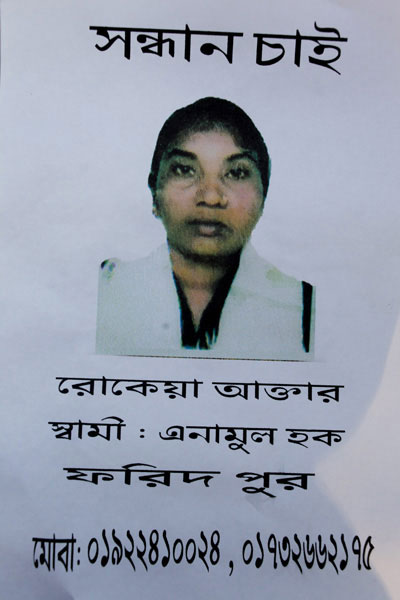 সন্ধান চাই
রোকেয়া আক্তার
স্বামী : এনামুল হক
ফরিদ পুর
মোবা: ০১৯২২৪১০০২৪ , ০১৭৩২৬৬২১৭৫